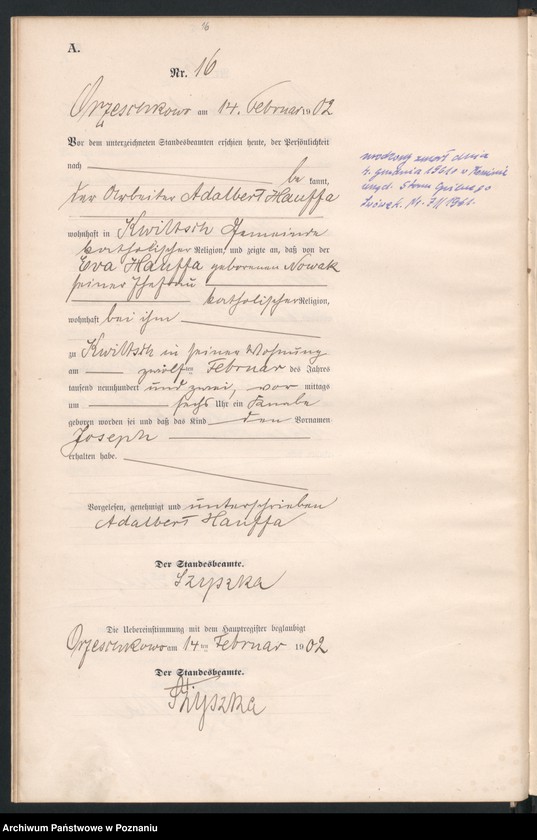 16
A.
Nr. 16
Orzeschkowo am 14. Februar 1902
Vor dem unterzeichneten Standesbeamten erschien heute, der Persönlichkeit
nach be kannt,
der Arbeiter Adalbert Hauffa
wohnhaft in Kwiltsch Gemeinde
katholischer Religion, und zeigte an, daß von der
Eva Hauffa geborenen Nowak
seiner Ehefrau
katholischer Religion,
wohnhaft bei ihm
zu Kwiltsch in seiner Wohnung
am zwölften Februar des Jahres
tausend neunhundert und zwei, vor mittags
um sechs Uhr ein Knabe
geboren worden sei und daß das Kind den Vornamen
Joseph
erhalten habe.
Vorgelesen, genehmigt und unterschrieben
Adalbert Hauffa
Der Standesbeamte.
Szyszka
Die Uebereinstimmung mit dem Hauptregister beglaubigt
Orzeschkowo am 14ten Februar 1902
Der Standesbeamte.
Szyszka
zmarł dnia
4. grudnia 1961 w
Lwówek. Nr.
Archiwum Państwowe w Poznaniu